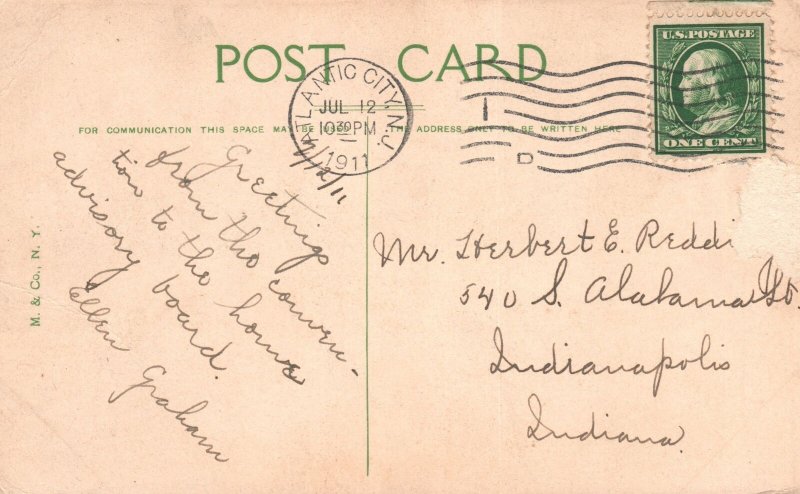 POST CARD
ATLANTIC CITY, N.J.
JUL 12
10 30 PM
1911
U.S. POSTAGE
ONE CENT
I
D
FOR COMMUNICATION THIS SPACE MAY BE USED
THE ADDRESS ONLY TO BE WRITTEN HERE
7/12/11
Greetings
from the conven-
tion to the home
advisory board.
Ellen Graham
Mr. Herbert E. Reddi
540 S. Alabama St.
Indianapolis
Indiana.
M. & Co., N. Y.